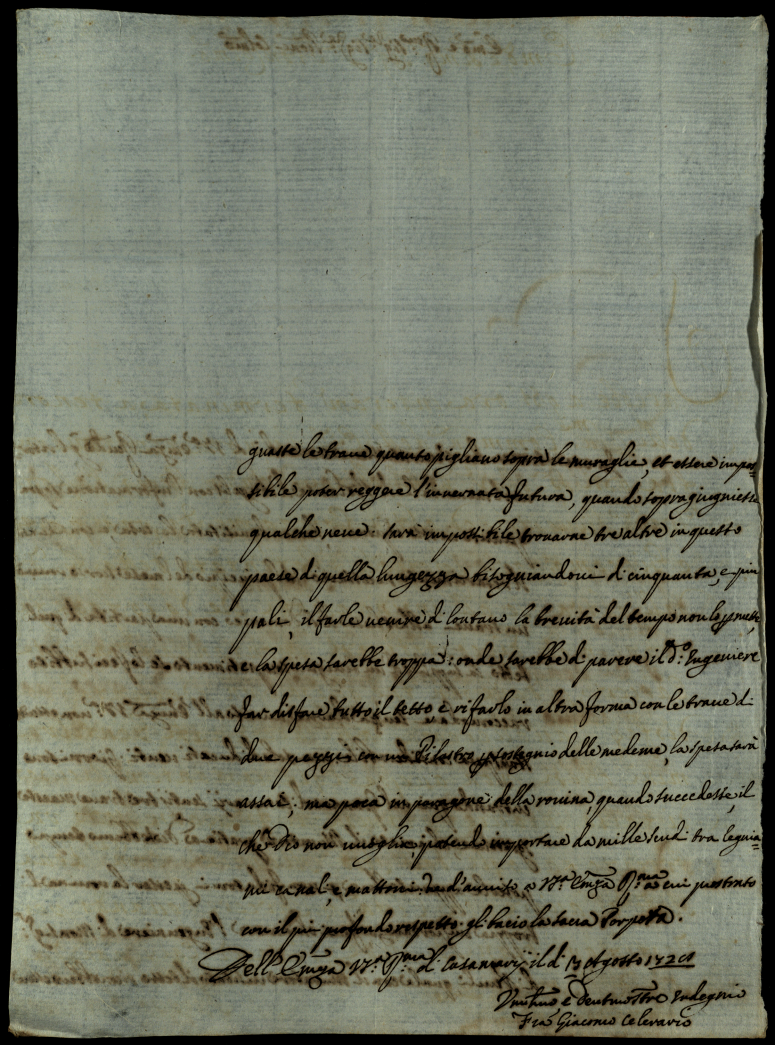 guaste le traue quanto pigliano sopra le muraglie, et essere impos=
sibile poter reggere l'inuernata futura, quando sopragiugniesse
qualche neue: sarà impossibile trouarne tre altre in questo
paese di quella lungezza bisogniandoui di cinquanta, e più
pali, il farle uenire di lontano la breuità del tempo non lo permette,
e la spesa sarebbe troppa: onde sarebbe di parere il d.º Ingeniere
far disfare tutto il tetto e rifarlo in altra forma con le traue di
due pezzi con un Pilastro p sostegnio delle medeme, la spesa sarà
assai, ma poca in paragone della rouina, quando succedesse, il
che Dio non uoglia, potendo importare da mille scudi tra legnia=
mi canali, e mattoni. Ne dò l'auuiso a V.ª Emza R.ma cui prostrato
con il più profondo rispetto gli bacio la sacra Porpora.
Dell'Emza V.ª R.ma di Casamarij il dì 13 Agosto
Vmilmo e Deuotmo Seruo Indegnio
Fra Giacomo Celerario